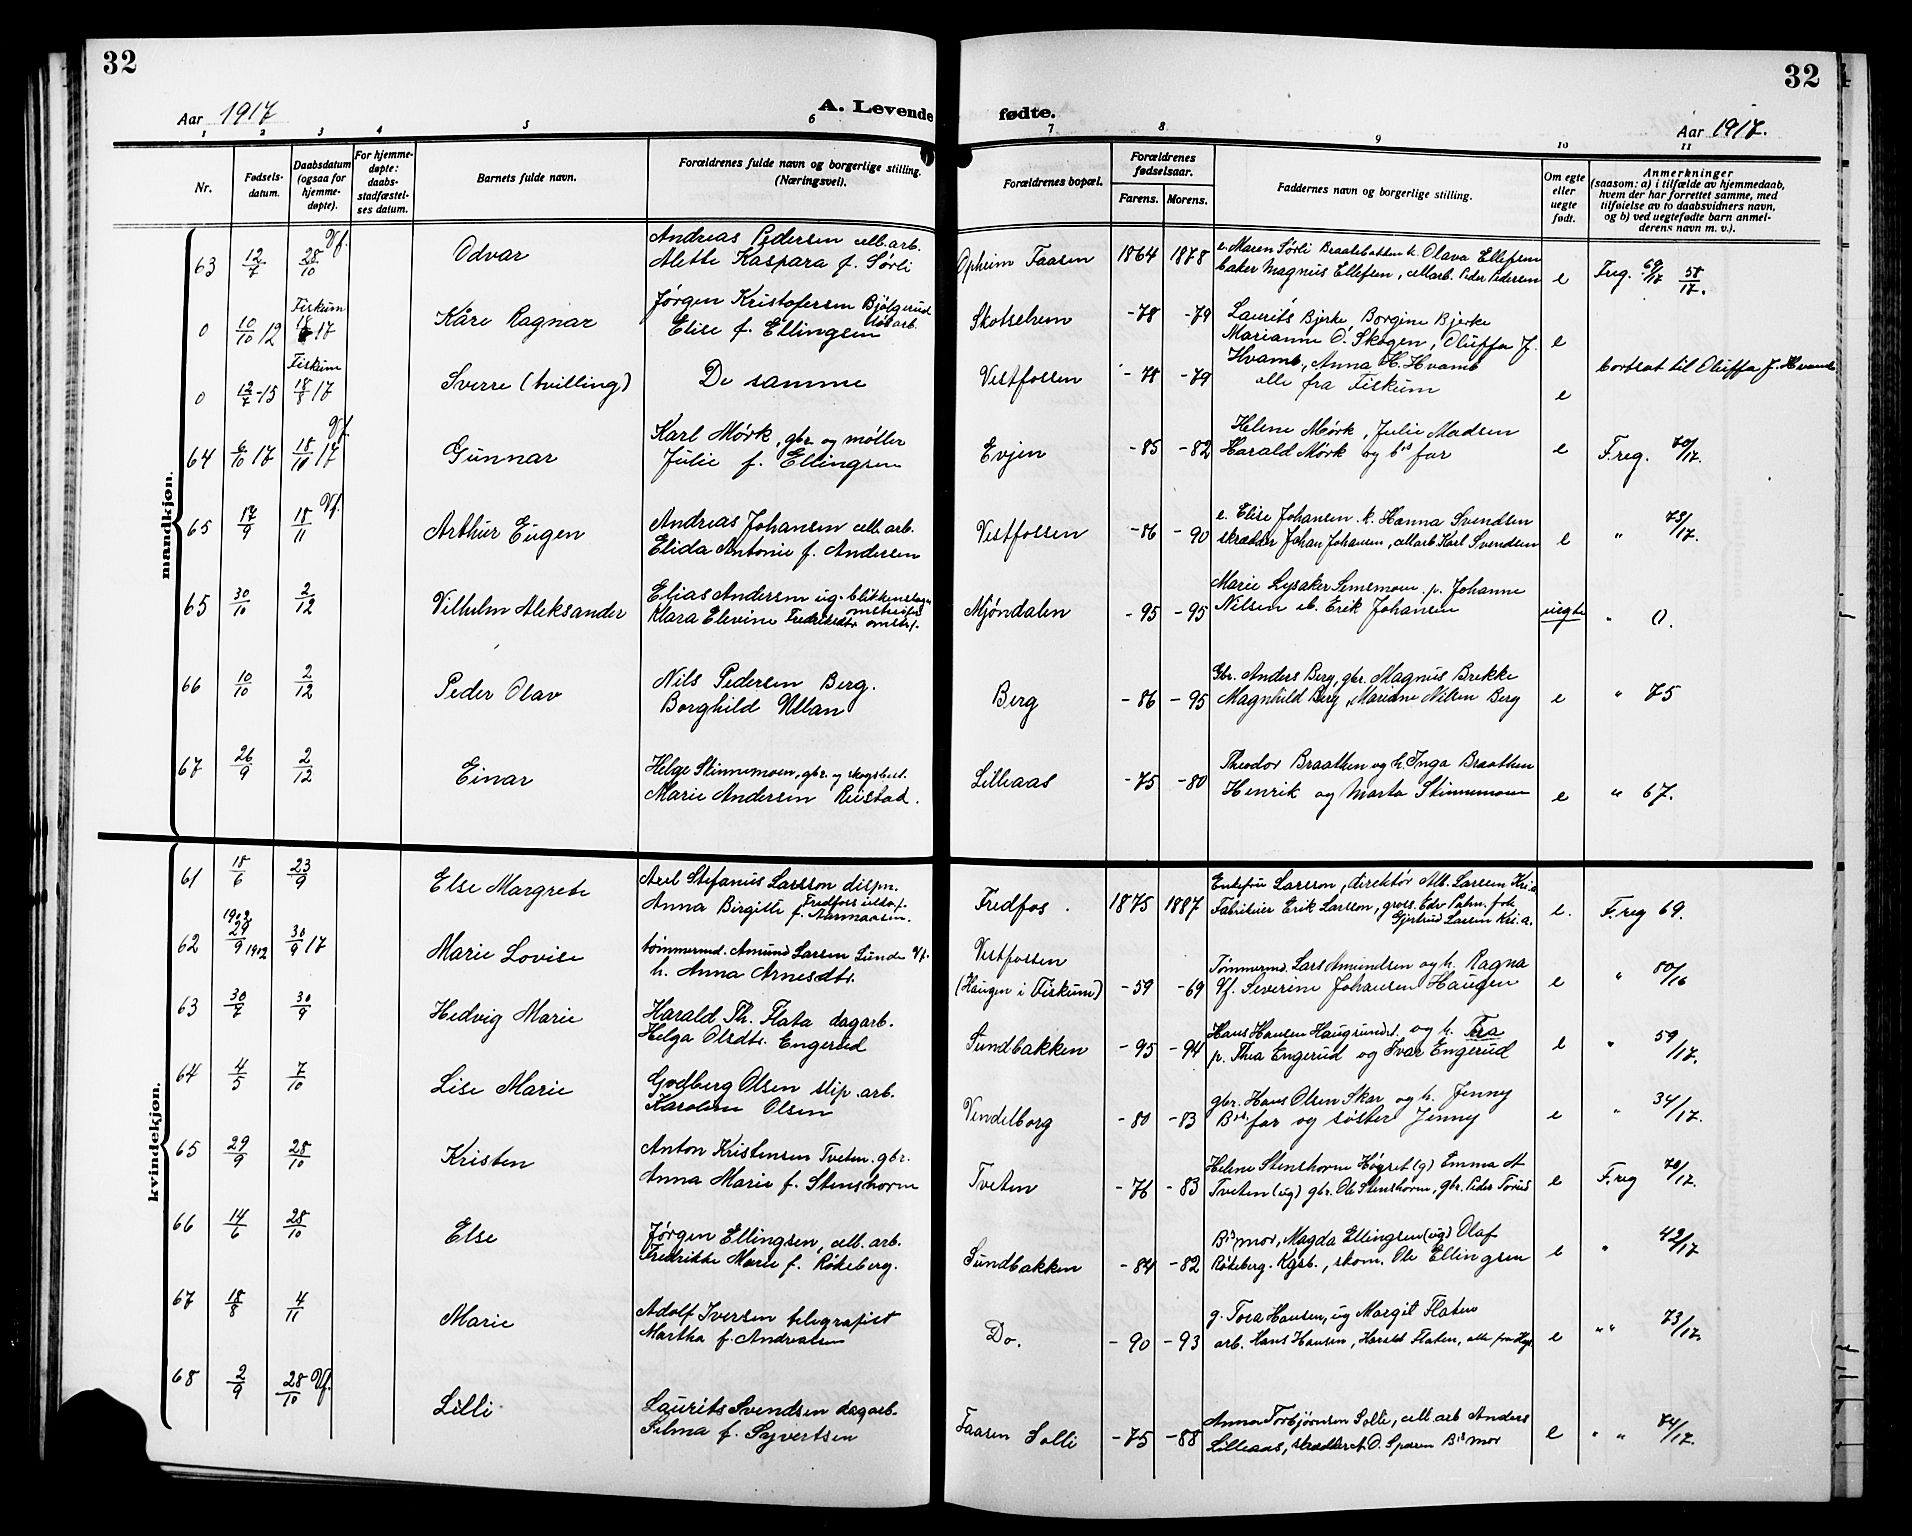 32
Aar 1917
A. Levende
1 2 3 4 5 6
Nr.
Fødsels-
datum.
Daabsdatum
(ogsaa for
hjemme-
døpte).
For hjemme-
døpte:
daabs-
stadfæstel-
ses datum.
Barnets fulde navn.
Forældrenes fulde navn og borgerlige stilling.
(Næringsvei).
mandkjøn.
63 12/7 28/10 Vf. Odvar
Andreas Pedersen cell. arb.
Alette Kaspara f. Sørli
0 10/10 12 Fiskum 18/8 17 Kåre Ragnar
Jørgen Kristofersen Bjølgerud
Elise f. Ellingsen
0 12/7-15 Fiskum 18/8 17 Sverre (tvilling)
De samme
64 6/10 17 18/11 17 Vf. Gunnar
Karl Mørk, gbr. og møller
Julie f. Ellingsen
65 17/9 18/11 Vf. Arthur Eugen
Andreas Johansen cell. arb.
Elida Antonie f. Andersen
65 30/10 2/12 Vilhelm Aleksander
Elias Andersen ug. blikkenslager
Klara Elevine Fredriksdtr.
66 10/10 2/12 Peder Olav
Nils Pedersen Berg.
Borghild Ullan
67 26/9 2/12 Einar
Helge Stinnemoen, gbr. og skogsbest.
Marie Andersen Reistad.
kvindekjøn.
61 18/6 23/9 Else Margrete
Axel Stefanus Larsson dispn.
Anna Birgitte f.
62 1902 29/9 1902 30/9 17 Marie Lovise
tømmermd. Amund Larsen Sunde Vf.
h. Anna Arnesdtr.
63 30/7 30/9 Hedvig Marie
Harald Th. Flata dagarb.
Helga Olsdtr. Engerud
64 4/5 7/10 Lise Marie
Godberg Olsen slip. arb.
Karoline Olsen
65 29/9 28/10 Kristen
Anton Kristensen Tveten. gbr.
Anna Marie f. Stenshorne
66 14/6 28/10 Else
Jørgen Ellingsen, cell. arb.
Fredrikke Marie f. Røkeberg.
67 18/8 4/11 Marie
Adolf Iversen telegrafist
Martha f. Andreasen
68 2/9 28/10 Vf. Lilli
Laurits Svendsen dagarb.
Selma f. Syvertsen
32
fødte.
Aar 1917.
7 8 9 10 11
Forældrenes bopæl.
Forældrenes
fødselsaar.
Farens. Morens.
Faddernes navn og borgerlige stilling.
Om egte
eller
uegte
født.
Anmerkninger
(saasom: a) i tilfælde av hjemmedaab,
hvem der har forrettet samme, med
tilføielse av to daabsvidners navn,
og b) ved uegtefødte barn anmel-
derens navn m. v.).
Opheim Faasen 1864 1878
e. Maren Sørli Braatebakken h. Olava Ellefsen
baker Magnus Ellefsen, cellarb. Peder Pedersen
e Freg. 69/17 58/17.
Skotselven -78 -79
Laurits Bjerke, Borgine Bjerke
Marianne O. Skogen, Oluffa J.
e
Vestfossen -78 -79
Hvamb, Anna H. Hvamb
alle fra Fiskum
e bortsat til Oluffa J. Hvamb
Evjen -85 -82
Helene Mørk, Julie Madsen
Harald Mørk og bs far
e F.reg. 70/17.
Vestfossen -86 -90
e. Elise Johansen. h. Hanna Svendsen
skrædder Johan Johansen, cellarb. Karl Svendsen
e " 73/17.
Mjøndalen -95 -95
Marie Lysaker Semsmoen p. Johanne
Nilsen Erik Johansen
uegte " 0.
Berg -86 -95
Gbr. Anders Berg, gbr. Magnus Brekke
Magnhild Berg, Mariane Nilsen Berg
e " 75
Lilleaas -75 -80
Theodor Braathen og h. Inga Braathen
Henrik og Marta Stinnemoen
e " 67.
Fredfos. 1875 1887
Enkefru Larsson, direktør Alb. Larssen Kr.a
Fabrikeier Erik Larsson, gross. Edv
Gjertrud Larsen Kr.a.
e. F.reg 69.
Vestfossen
(Haugen i Fiskum) -59 -69
Tømmermd. Lars Amundsen og h. Ragna
Vf. Severine Johansen Haugen
e " 80/16
Sundbakken -95 -94
Hans Hansen Haugsundet og h. Tea
p. Thea Engerud og Ivar Engerud
e " 59/17.
Vendelborg -80 -83
gbr. Hans Olsen Skar og h. Jenny
Bts. far og søster Jenny
e " 34/17.
Tveten -76 -83
Helene Stenshorne Høgset (g) Emma
Tveten (ug) gbr. Ole Stenshorne, gbr. Peder Torud
e F.reg 70/17.
Sundbakken -84 -82
Bts mor, Magda Ellingsen (ug) Olaf
Røkeberg. Kgsb., skom. Ole Ellingsen
e " 42/17
Do. -90 -93
g. Tora Hansen, ug Margit Flaten
arb. Hans Hansen, Harald Flaten, alle fra
e " " 73/17.
Faasen Solli -75 -88
Anna Torbjørnsen Solli, cell. arb Anders
Lilleaas, O. Sparen Bts mor
e " " 74/17.